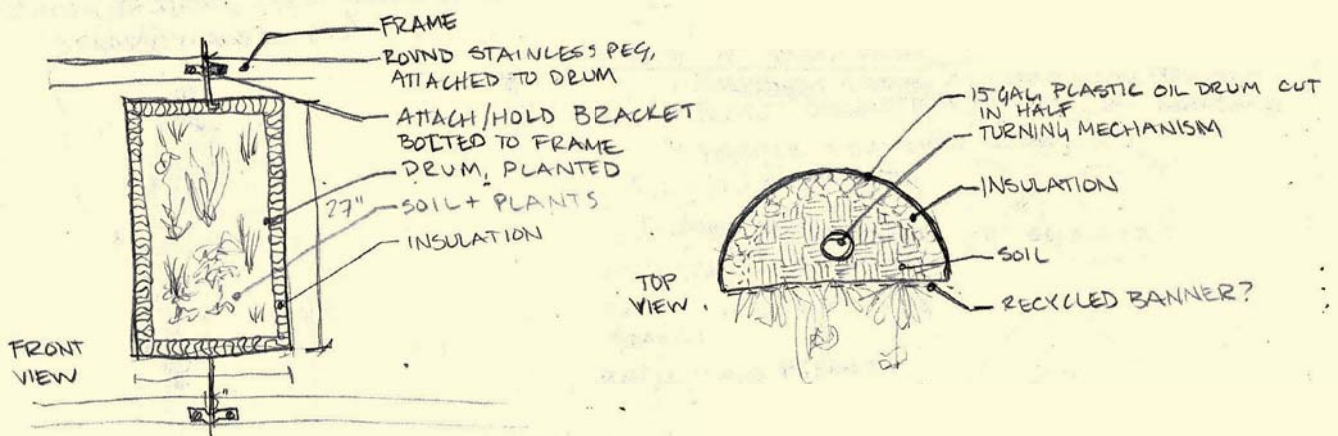 FRAME
ROUND STAINLESS PEG,
ATTACHED TO DRUM
ATTACH/HOLD BRACKET
BOLTED TO FRAME
DRUM, PLANTED
27"
SOIL + PLANTS
INSULATION
FRONT
VIEW
15 GAL, PLASTIC OIL DRUM CUT
IN HALF
TURNING MECHANISM
INSULATION
SOIL
TOP
VIEW
RECYCLED BANNER?